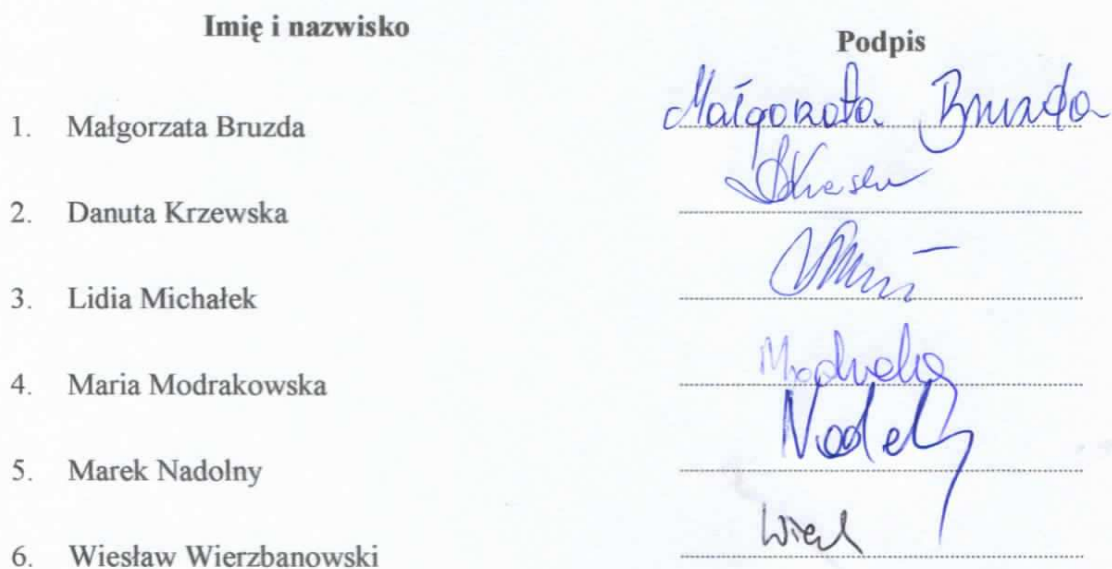 Imię i nazwisko Podpis
1. Małgorzata Bruzda Małgorzata Bruzda
2. Danuta Krzewska
3. Lidia Michałek
4. Maria Modrakowska
5. Marek Nadolny
6. Wiesław Wierzbanowski